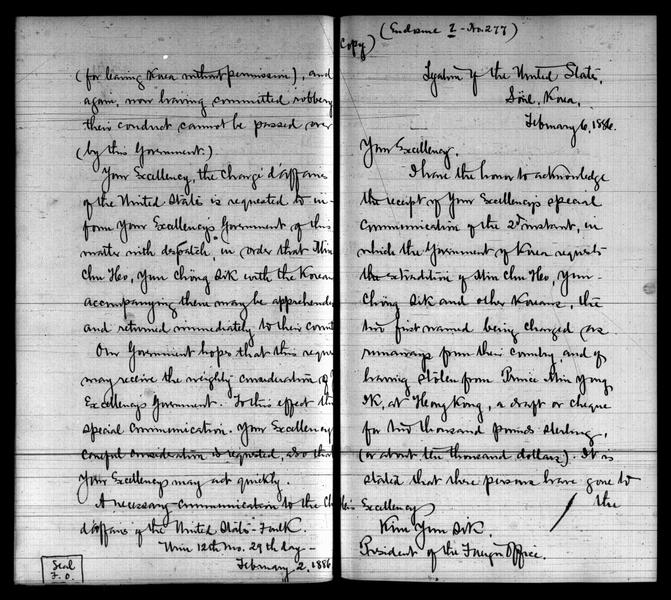 (for leaving Korea without permission), and
again, now having committed robbery
their conduct cannot be passed over
(by this Government.)
Your Excellency, the Chargé d'affaires
of the United States is requested to in-
form Your Excellency's Government of this
matter with despatch, in order that Min
Chu Ho, Yun Chöng Sik with the Korean
accompanying them may be apprehende
and returned immediately to their count
Our Government hopes that this reque
may receive the weighty consideration of
Excellency's Government. To this effect th
special communication. Your Excellency
careful consideration is requested, also that
Your Excellency may act quickly.
A necessary communication to the Ch
d'affaires of the United States - Foulk.
12th Mo. 29th day -
February 2, 1886
Seal
F. O.
(Enclosure 2 - No. 277)
Copy)
Legation of the United States,
Söul, Korea,
February 6, 1886.
Your Excellency,
I have the honor to acknowledge
the receipt of Your Excellency's special
communication of the 2d instant, in
which the Government of Korea requests
the extradition of Min Chu Ho, Yun
Chöng Sik and other Koreans, the
two first named being charged as
runaways from their country, and of
having stolen from Prince Min Yong
Ik, at Hong Kong, a draft or cheque
for two thousand pounds sterling,
(or about ten thousand dollars). It is
stated that these persons have gone to
the
His Excellency
Kim Yun Sik,
President of the Foreign Office.